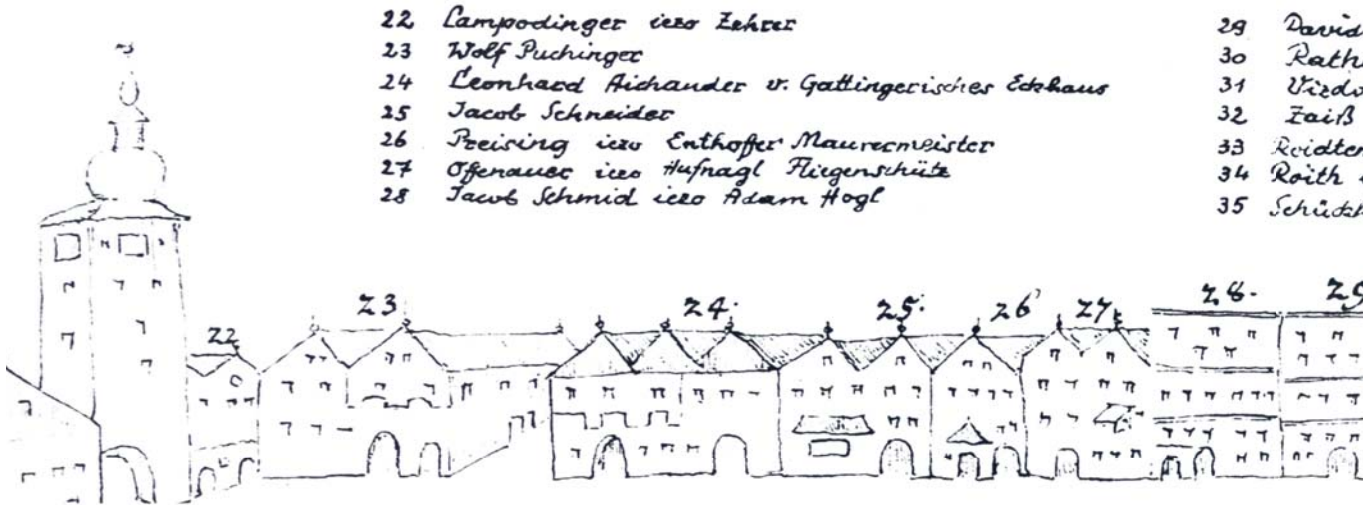 22 Lampodinger iezo Zehrer
23 Wolf Puchinger
24 Leonhard Aichander v. Gattingerisches Eckhaus
25 Jacob Schneider
26 Preising iezo Enthoffer Maurermeister
27 Offenauer iezo Hufnagl Fliegenschütz
28 Jacob Schmid iezo Adam Hogl
29 David
30 Rath
31 Vizdo
32 Zaiß
33 Reidter
34 Roith
35 Schütz
22
23
24.
25.
26
27.
28.
29